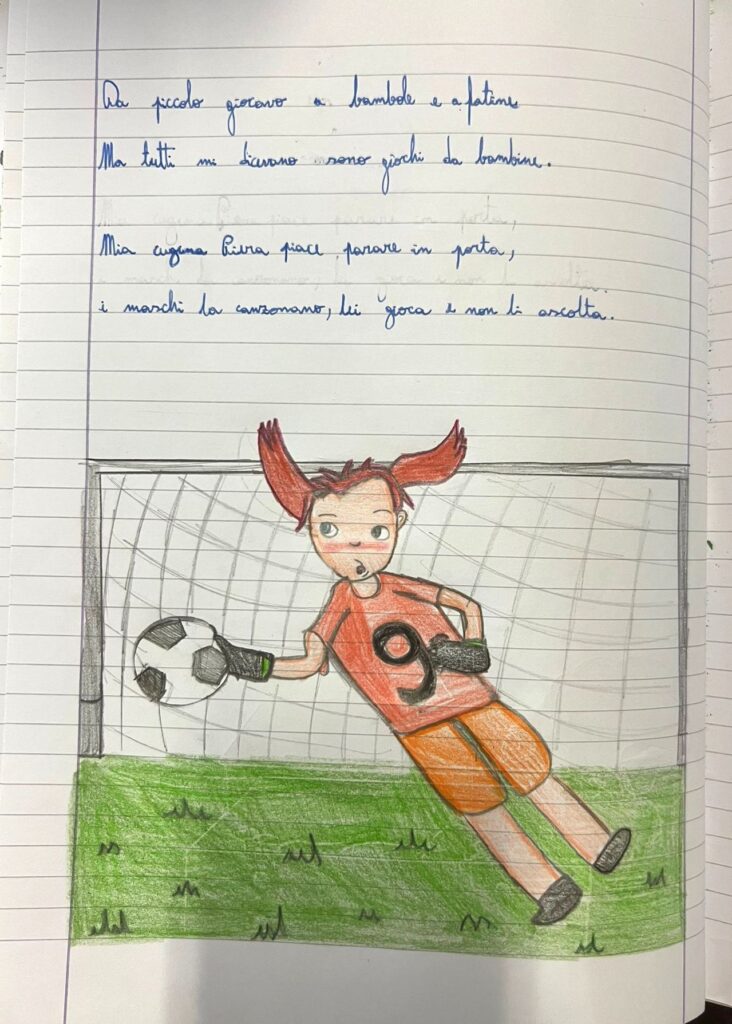 Da piccolo giocavo a bambole e a fatine
Ma tutti mi dicevano sono giochi da bambine.
Mia cugina Piera piace parare in porta,
i maschi la canzonano, lei gioca e non li ascolta.
9